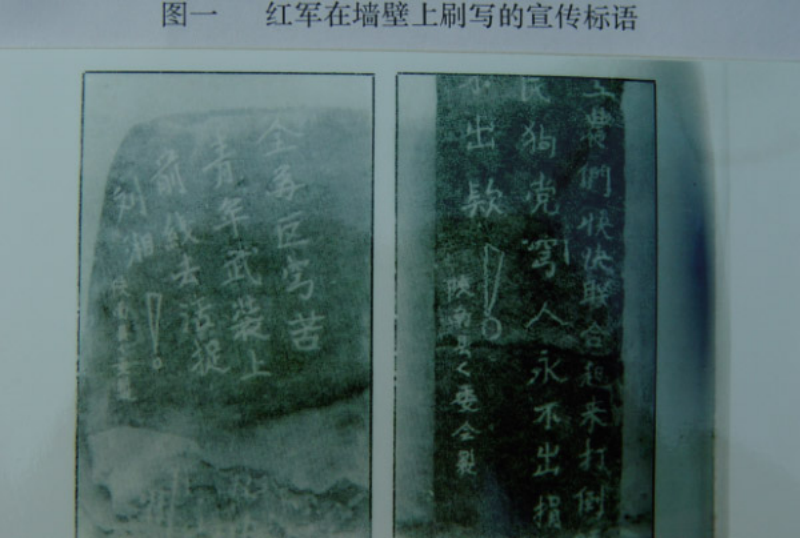 图一 红军在墙壁上刷写的宣传标语
全 区穷苦
青年武裝上
前线去活捉
刘湘！
陕南
工農們快快联合起来打倒
民狗党穷人永不出捐
不出款！
陕南 委